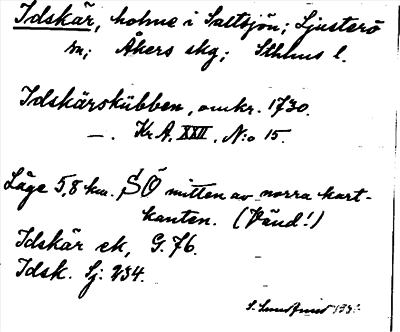 Idskär, holme i Saltsjön; Ljusterö
sn; Åkers skg; Sthlms l.
Idskärskübben, omkr. 1730.
—. Kr A. XXII, N:o 15.
Läge 5,8 km. SÖ mitten av norra kart-
kanten. (Vänd!)
Idskär ek, G. 76.
Idsk. Sj: 234.